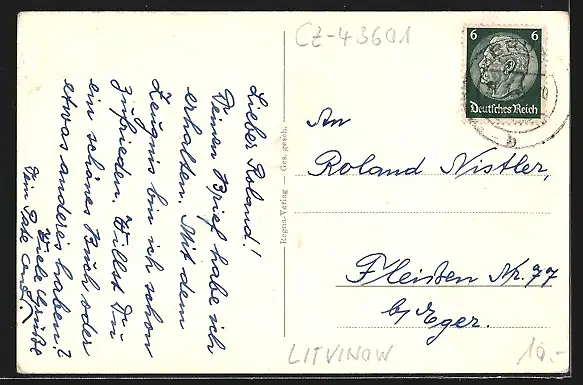 CZ-43601
6 6
Deutsches Reich
b
Lieber Roland!
Deinen Brief habe ich
erhalten. Mit dem
Zeugnis bin ich schon
zufrieden. Willst Du
ein schönes Buch oder
etwas anderes haben?
Viele Grüße
Dein Pate
Regna-Verlag — Ges. gesch.
An
Roland Nistler,
Fleißen Nr. 77
by Eger.
LITVINOW
10.-